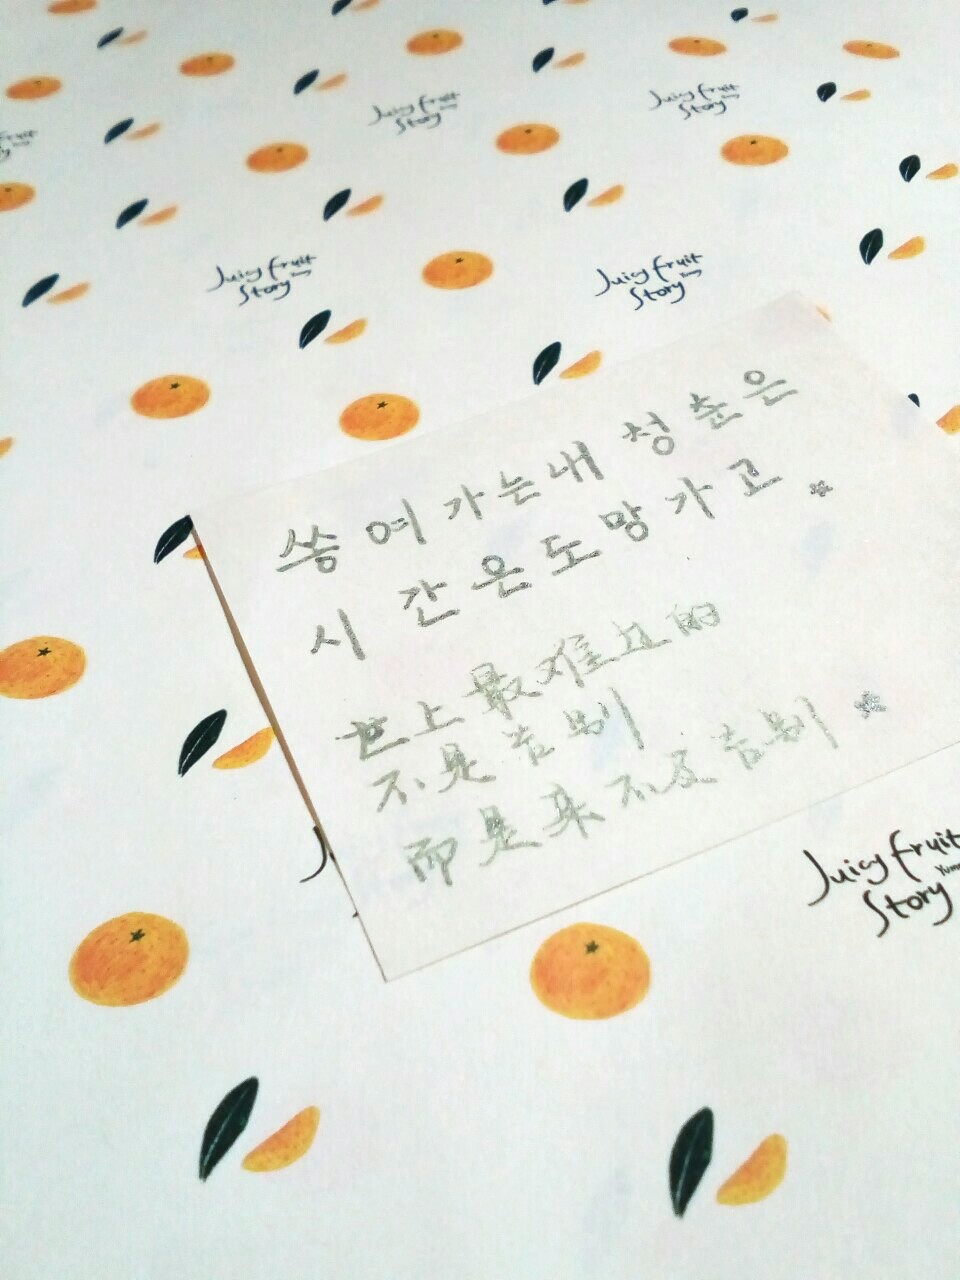 Juicy fruit
Story
Juicy fruit
Story
Juicy fruit
Story
Juicy fruit
Story
쏭여가는내 청춘은
시간은도망가고
世上最难过的
不是告别
而是来不及告别
Juicy fruit
Story